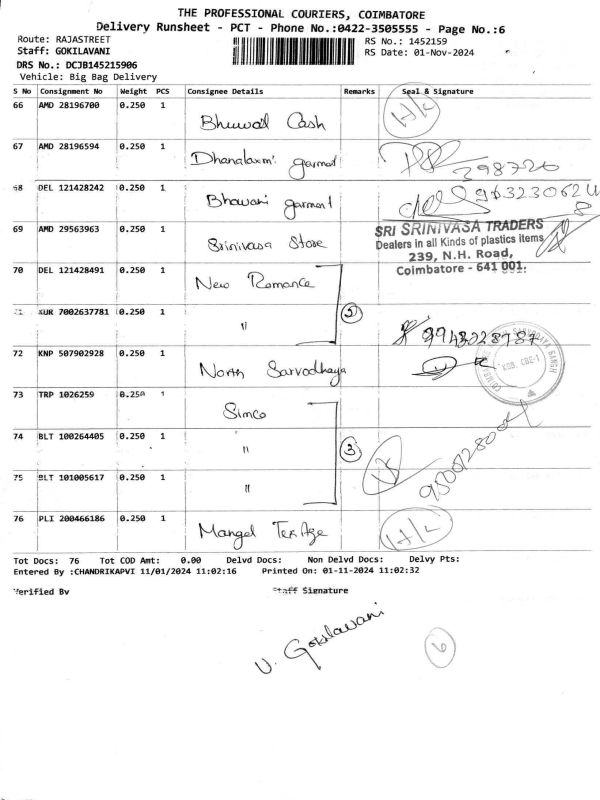 THE PROFESSIONAL COURIERS, COIMBATORE
Delivery Runsheet - PCT - Phone No.:0422-3505555 - Page No.:6
Route: RAJASTREET RS No.: 1452159
Staff: GOKILAVANI RS Date: 01-Nov-2024
DRS No.: DCJB145215906
Vehicle: Big Bag Delivery
S No Consignment No Weight PCS Consignee Details Remarks Seal & Signature
66 AMD 28196700 0.250 1 Cash H/C
67 AMD 28196594 0.250 1 Dhanalaxmi garment 398720
68 DEL 121428242 0.250 1 Bhawani garment 963230624
8
69 AMD 29563963 0.250 1 Srinivasa Store
SRI SRINIVASA TRADERS
Dealers in all Kinds of plastics items
239, N.H. Road,
Coimbatore - 641 001.
70 DEL 121428491 0.250 1 New Romance
71 KUR 7002637781 0.250 1 " 9943028787
72 KNP 507902928 0.250 1 North Sarvodhaya
73 TRP 1026259 0.250 1 Simco
74 BLT 100264405 0.250 1 " 3
75 BLT 101005617 0.250 1 "
76 PLI 200466186 0.250 1 Mangal H/C
Tot Docs: 76 Tot COD Amt: 0.00 Delvd Docs: Non Delvd Docs: Delvy Pts:
Entered By :CHANDRIKAPVI 11/01/2024 11:02:16 Printed On: 01-11-2024 11:02:32
Verified By Staff Signature
V. Gokilavani
6